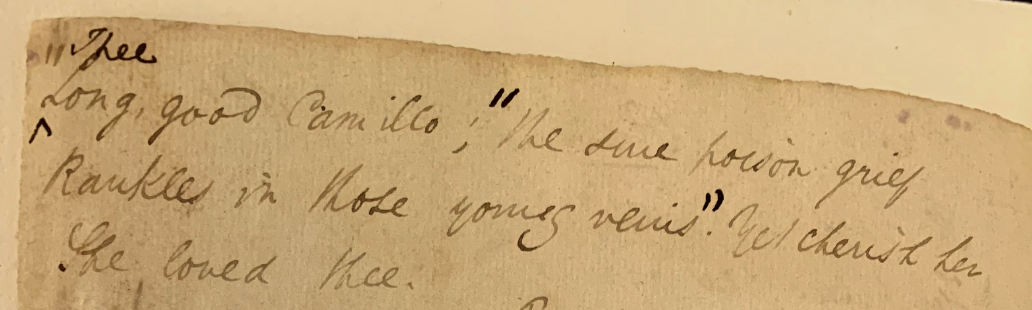 "Thee
Long, good Camillo; "the sure poison grief
Rankles in those young veins". Yet cherish her
She loved thee.